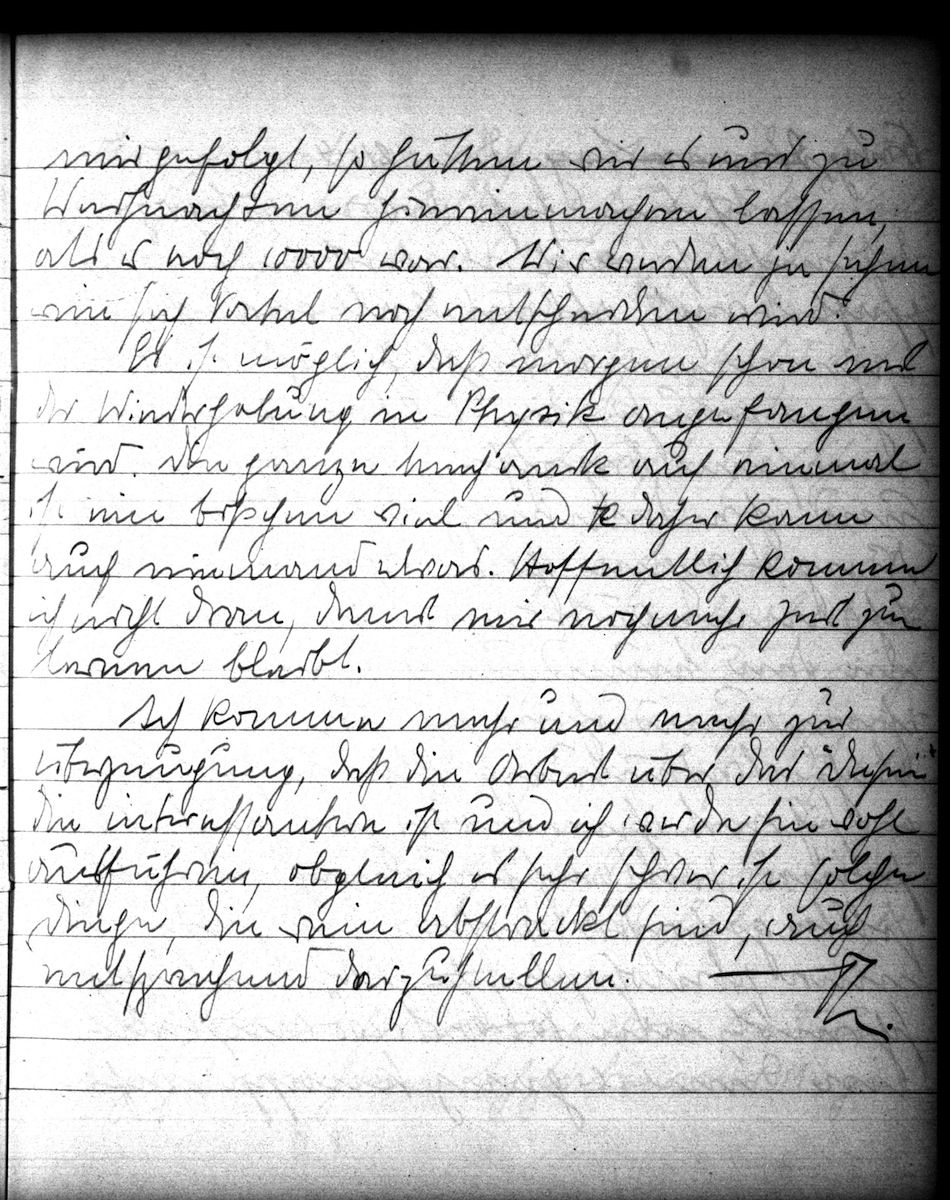 mir gefolgt, so hätten wir es uns zu
Weihnachten hineinmachen lassen,
als es noch 10000 war. Wir werden ja sehen
wie sich Vortel noch entscheiden wird.
Es ist möglich, daß morgen schon mit
der Wiederholung in Physik angefangen
wird. Die ganze Mechanik auf einmal
ist ein bischen viel und daher kann
auch niemand etwas. Hoffentlich komme
ich nicht dran, damit mir noch mehr Zeit zum
lernen bleibt.
Ich komme mehr und mehr zur
Überzeugung, daß die Arbeit über das "Ich
die interessanteste ist und ich werde sie wohl
ausführen, obgleich es sehr schwer ist solche
Dinge, die rein abstrackt sind, auch
entsprechend darzustellen.